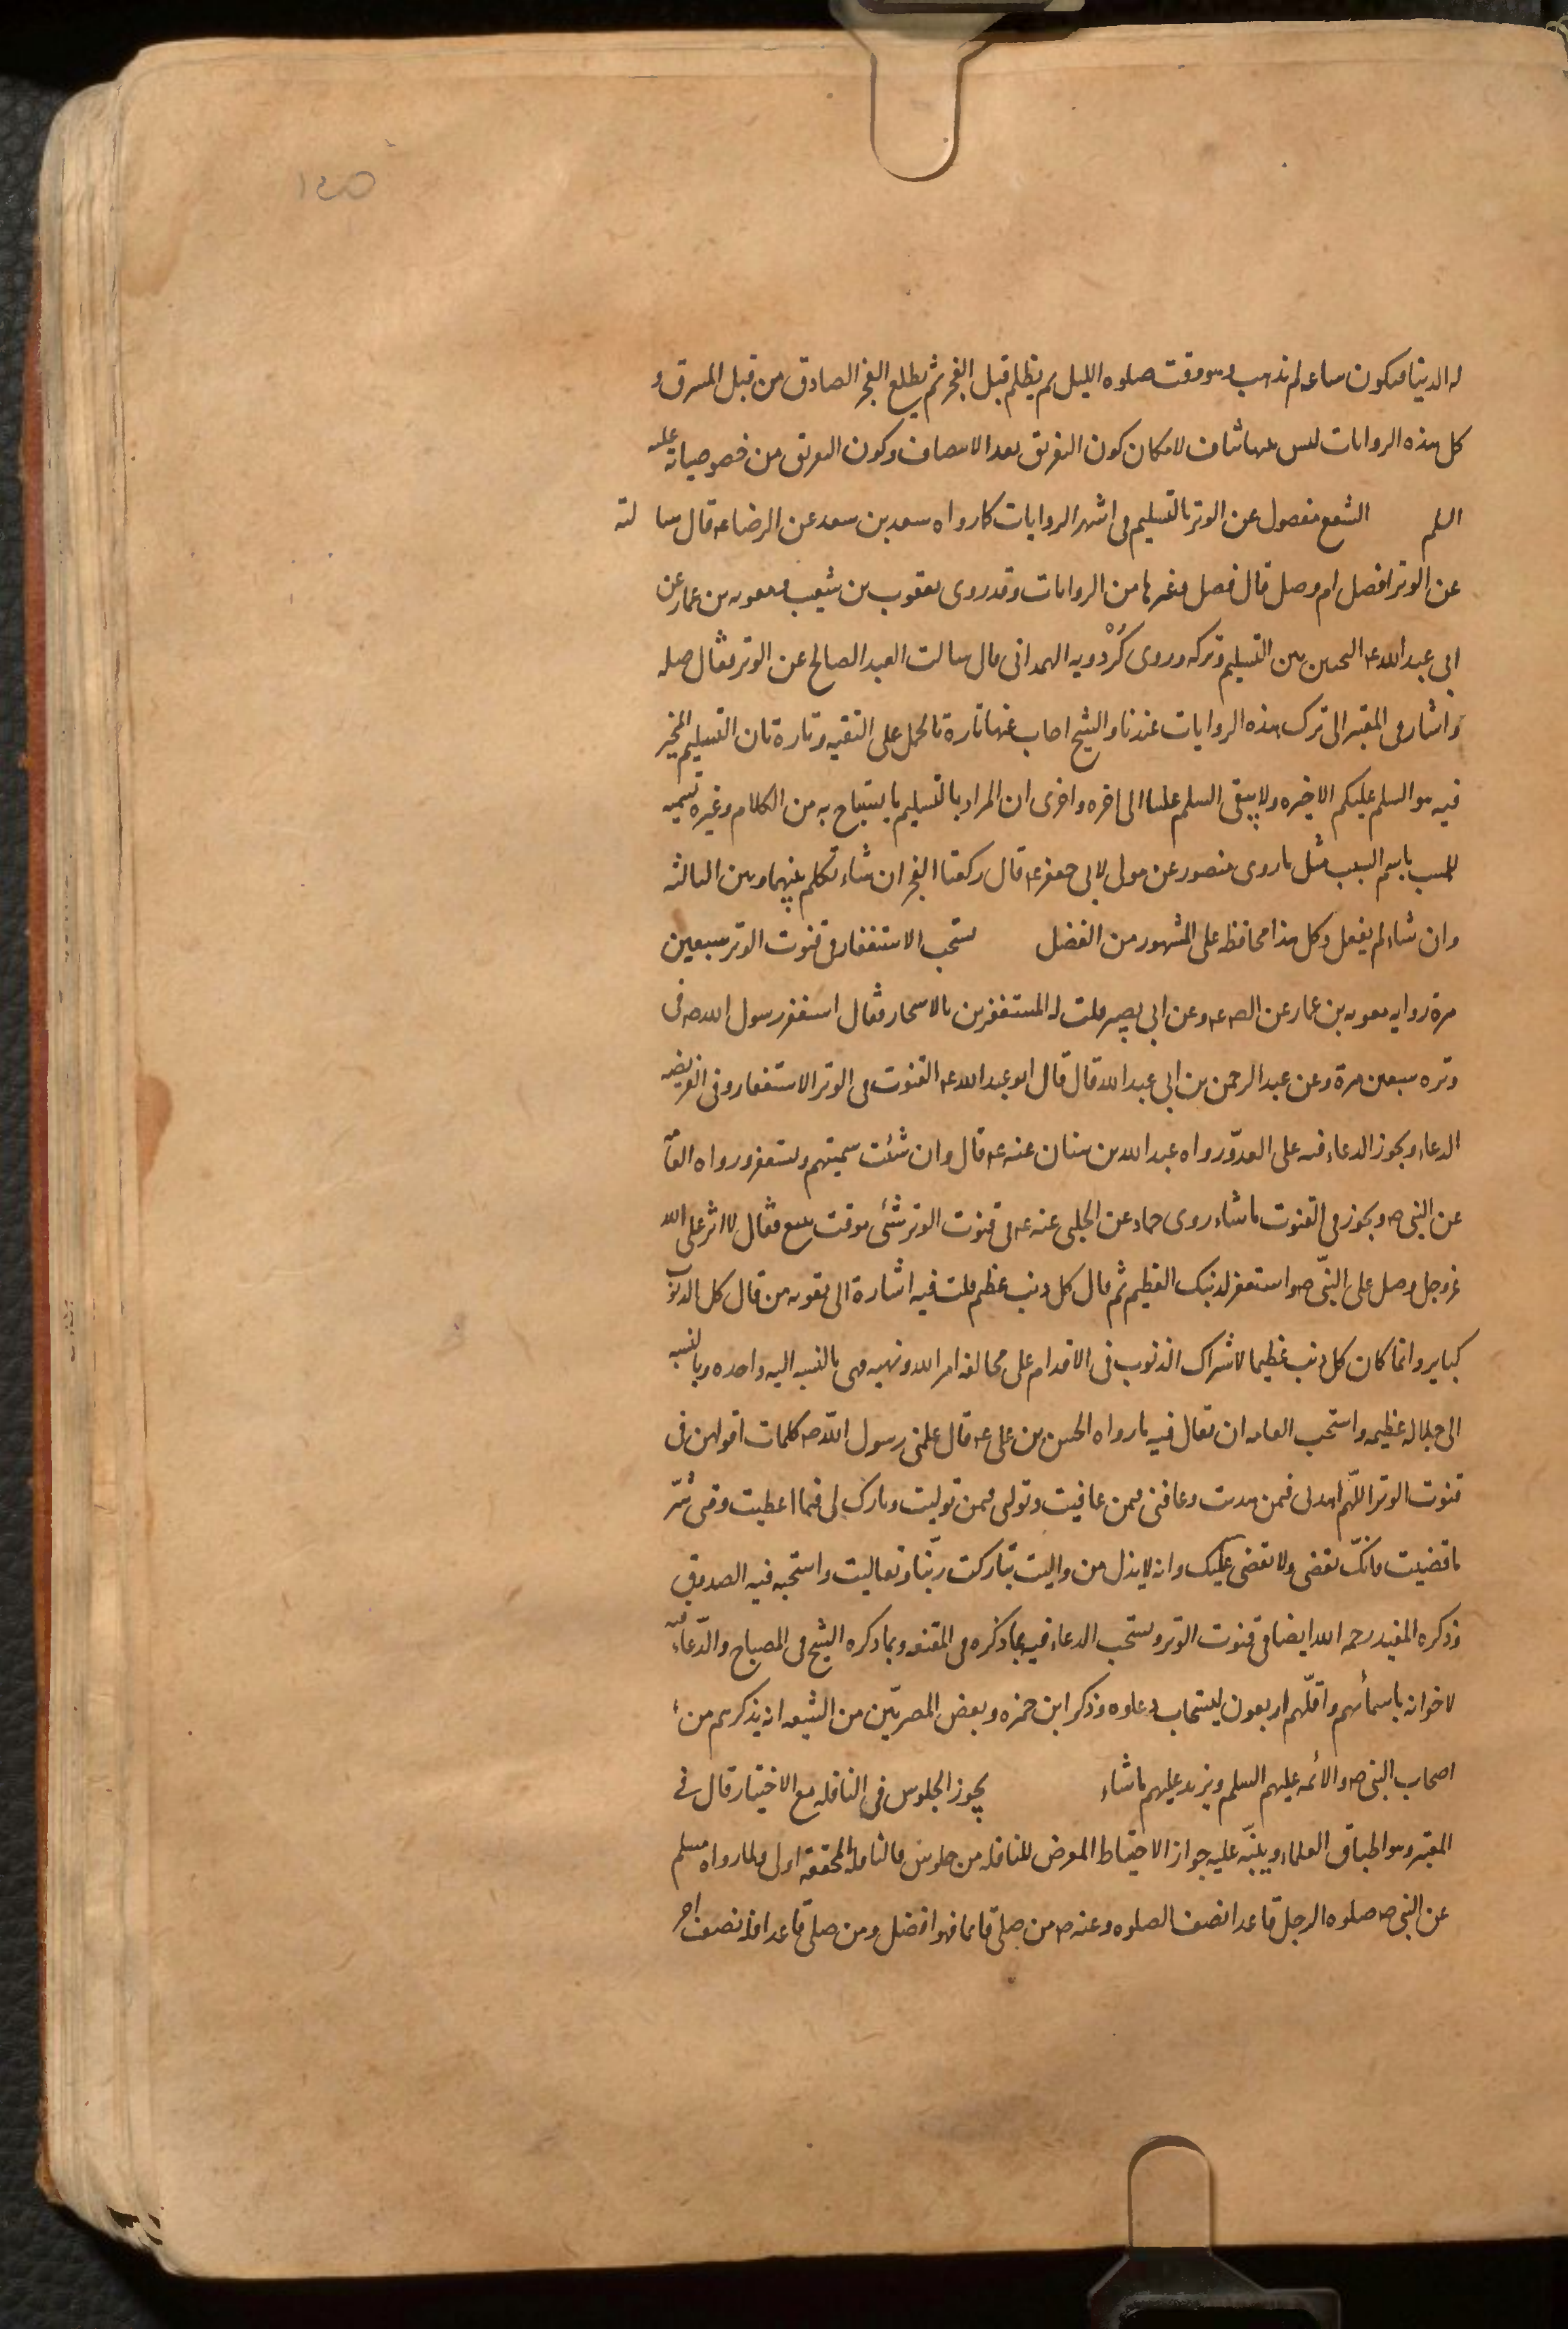 ١٤٥
له الدنيا فيكون ساعه ثم تذهب وهو وقت صلوه الليل ثم يظلم قبل الفجر ثم يطلع الفجر الصادق من قبل المشرق و
كل هذه الروايات ليس بينها تناف لامكان كون التفريق بعد الانتصاف وكون التفريق من خصوصياته عليه
السلم الشفع مفصول عن الوتر بالتسليم في اشهر الروايات كما رواه سعد بن سعد عن الرضا عه قال سالته
عن الوتر افصل ام وصل قال فصل وغيرها من الروايات وقد روى يعقوب بن شعيب ومعويه بن عمار عن
ابي عبد الله عه التخيير بين التسليم وتركه وروى كُرْدويه الهمداني قال سالت العبد الصالح عن الوتر فقال صله
واشار في المعتبر الى ترك هذه الروايات عندنا والشيخ اجاب عنها تارة بالحمل على التقيه وتارة بان التسليم المخير
فيه هو السلم عليكم الاخيره ولا يبقى السلم علينا الى اخره واخرى ان المراد بالتسليم ما يستباح به من الكلام وغيره تسميه
للمسبب باسم السبب مثل ما روى منصور عن مولى لابي جعفر عه قال ركعتا الفجر ان شاء تكلم بينهما وبين الثالثه
وان شاء لم يفعل وكل هذا محافظه على المشهور من الفصل يستحب الاستغفار في قنوت الوتر سبعين
مرة رواه معويه بن عمار عن الص عه وعن ابي بصير قلت له المستغفرين بالاسحار فقال استغفر رسول الله صه في
وتره سبعين مرة وعن عبد الرحمن بن ابي عبد الله قال قال ابو عبد الله عه القنوت في الوتر الاستغفار وفي الفريضه
الدعاء ويجوز الدعاء فيه على العدوّ رواه عبد الله بن سنان عنه عه قال وان شئت سميتهم وتستغفر ورواه العامه
عن النبي صه ويجوز في القنوت ما شاء روى حماد عن الحلبي عنه عه في قنوت الوتر شئ موقت يتبع فقال لا اثن على الله
عز وجل وصل على النبّي صه واستغفر لذنبك العظيم ثم قال كل ذنب عظيم قلت فيه اشارة الى تقويه من قال كل الذنوب
كباير وانما كان كل ذنب عظيما لاشراك الذنوب في الاقدام على مخالفه امر الله ونهيه وهي بالنسبه اليه واحده وبالنسبه
الى جلاله عظيمه واستحب العامه ان يقال فيه ما رواه الحسن بن على عه قال علمني رسول اللّه صه كلمات اقولهن في
قنوت الوتر اللّهم اهدني فيمن هديت وعافني فيمن عافيت وتولني فيمن توليت وبارك لي فيما اعطيت وقني شرّ
ما قضيت فانكّ تقضى ولا يقضى عليك وانه لا يذل من واليت تباركت ربّنا وتعاليت واستحبه فيه الصدوق
وذكره المفيد رحمه الله ايضا في قنوت الوتر ويستحب الدعاء فيه بما ذكره في المقنعه وبما ذكره الشيخ في المصباح والدّعاء فيه
لاخوانه باسمائهم واقلّهم اربعون ليستجاب دعاوه وذكر ابن حمزه وبعض المصريّين من الشيعه انه يذكرهم من
اصحاب النبي صه والائمه عليهم السلم ويزيد عليهم ما شاء يجوز الجلوس في النافله مع الاختيار قال في
المعتبر وهو اطباق العلماء وينبّه عليه جواز الاحتياط المعرض للنافله من جلوس فالنافله المحققه اولى ولما رواه مسلم
عن النبي صه صلوه الرجل قاعدا نصف الصلوه وعنه صه من صلى قايما فهو افضل ومن صلى قاعدا فله نصف اجر